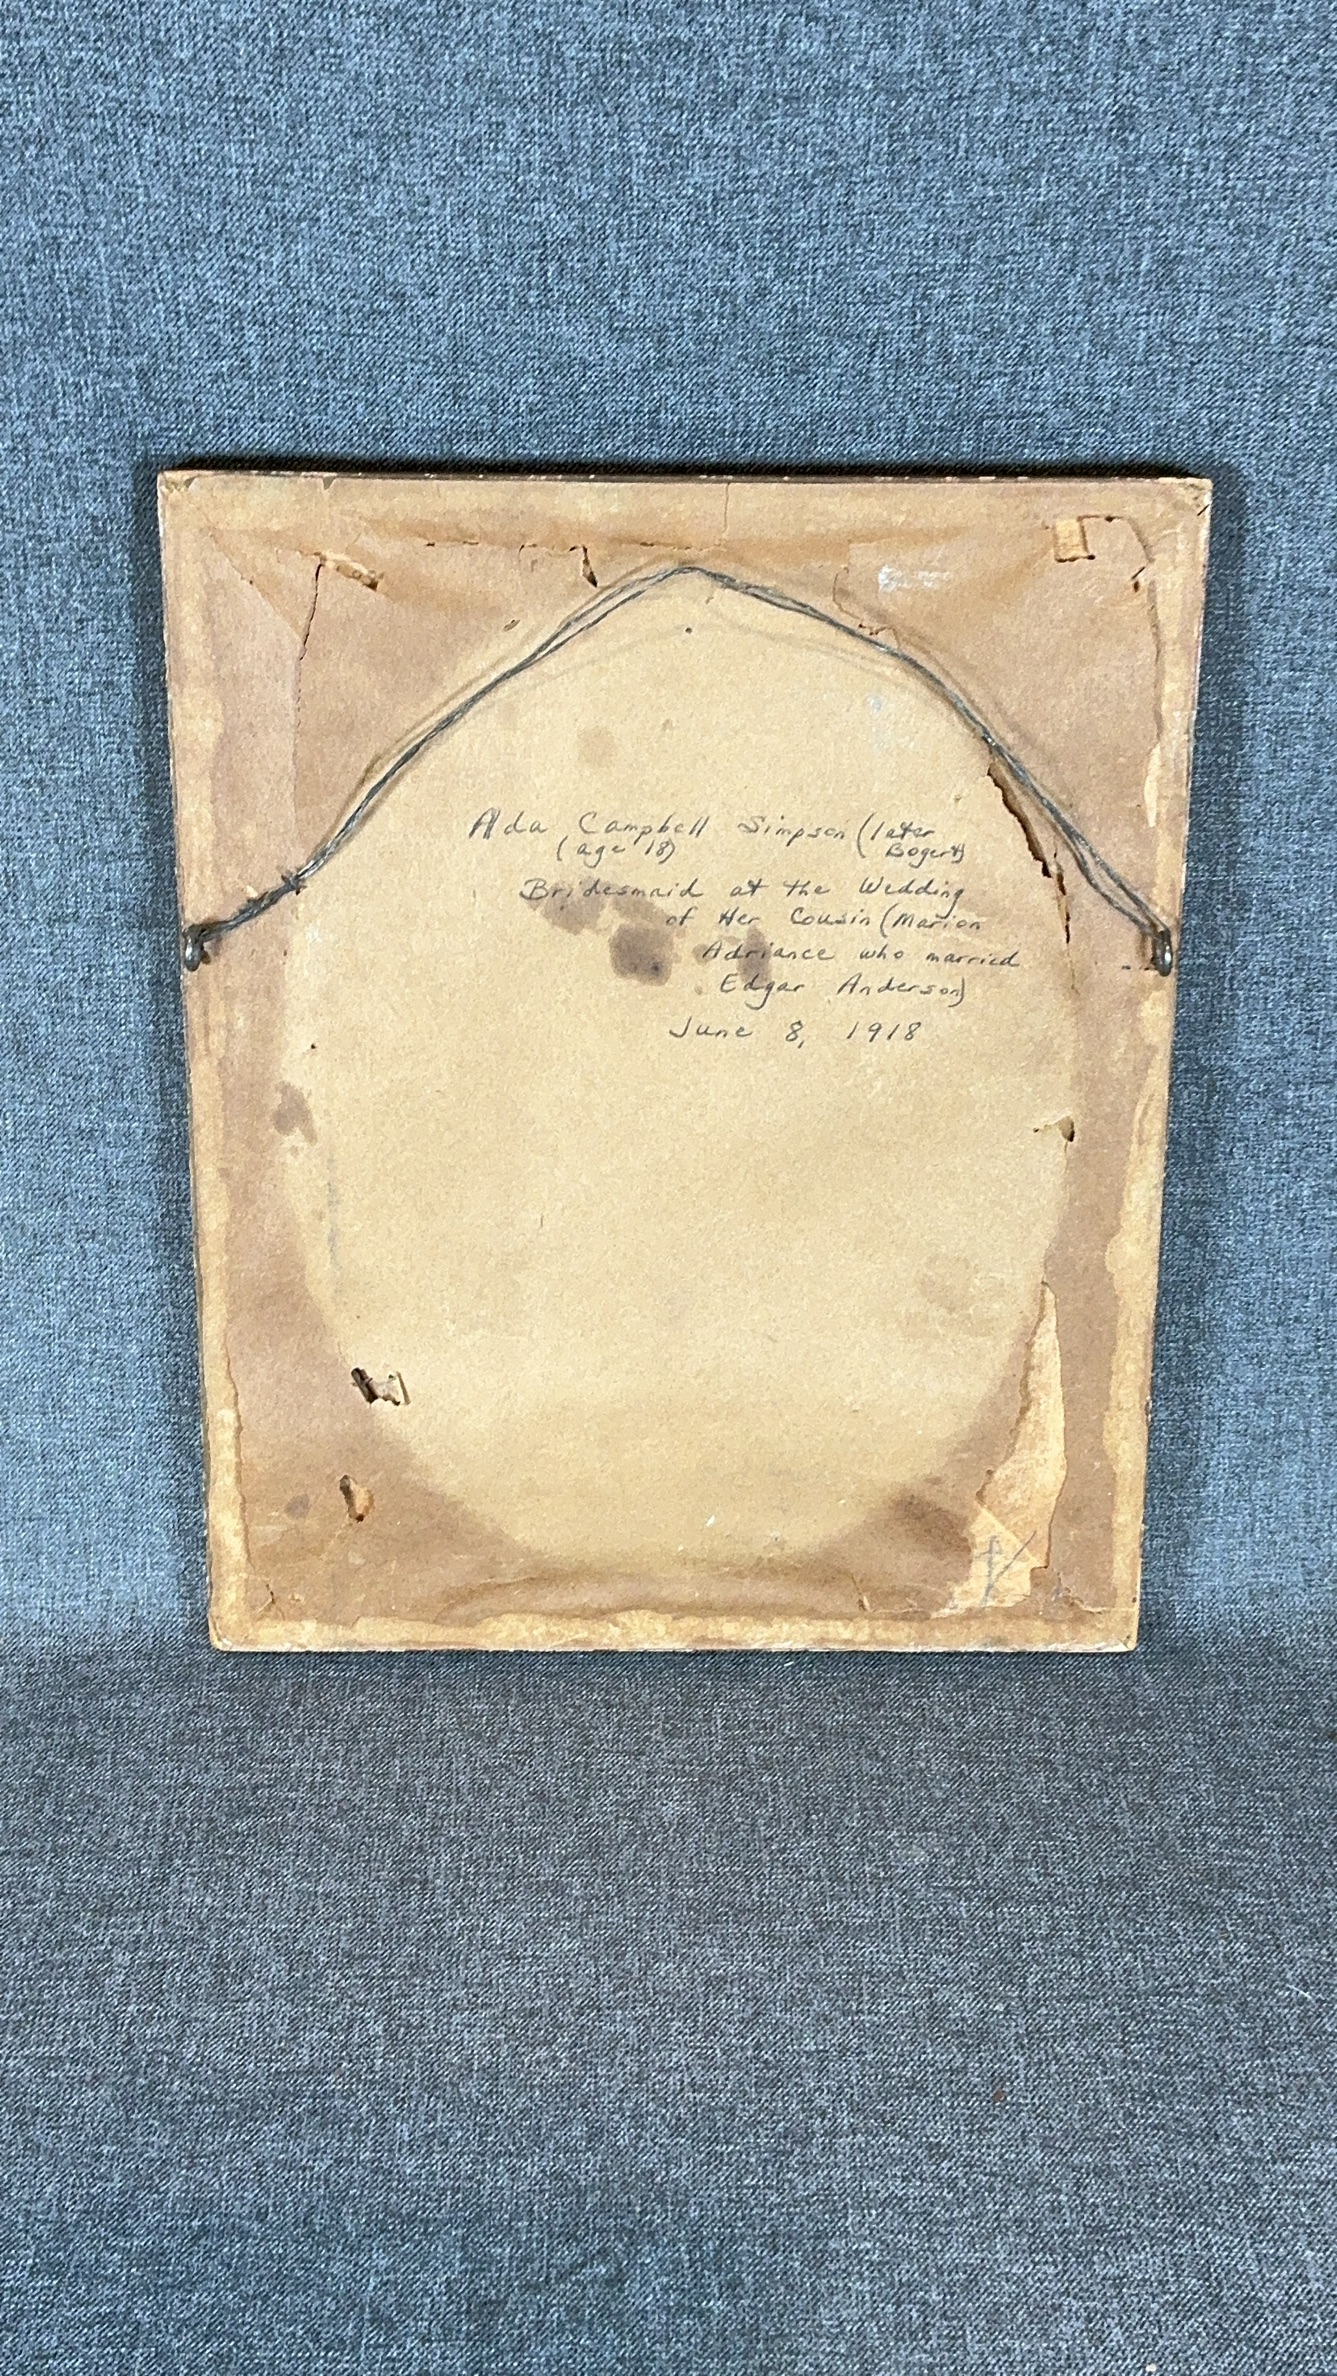 Ada Campbell Simpson (later
(age 18) Bogert)
Bridesmaid at the Wedding
of Her Cousin (Marion
Adriance who married
Edgar Anderson)
June 8, 1918